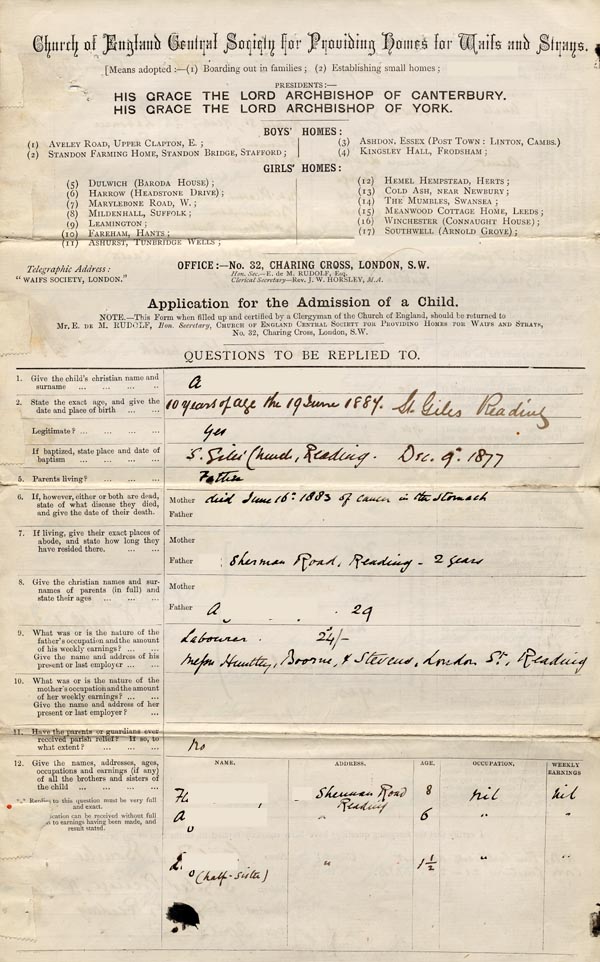 Church of England Central Society for Providing Homes for Waifs and Strays.
[Means adopted:—(1) Boarding out in families; (2) Establishing small homes;
PRESIDENTS:—
HIS GRACE THE LORD ARCHBISHOP OF CANTERBURY.
HIS GRACE THE LORD ARCHBISHOP OF YORK.
BOYS' HOMES:
(1) AVELEY ROAD, UPPER CLAPTON, E.;
(2) STANDON FARMING HOME, STANDON BRIDGE, STAFFORD;
(3) ASHDON, ESSEX (POST TOWN: LINTON, CAMBS.)
(4) KINGSLEY HALL, FRODSHAM;
GIRLS' HOMES:
(5) DULWICH (BARODA HOUSE);
(6) HARROW (HEADSTONE DRIVE);
(7) MARYLEBONE ROAD, W.;
(8) MILDENHALL, SUFFOLK;
(9) LEAMINGTON;
(10) FAREHAM, HANTS;
(11) ASHURST, TUNBRIDGE WELLS;
(12) HEMEL HEMPSTEAD, HERTS;
(13) COLD ASH, NEAR NEWBURY;
(14) THE MUMBLES, SWANSEA;
(15) MEANWOOD COTTAGE HOME, LEEDS;
(16) WINCHESTER (CONNAUGHT HOUSE);
(17) SOUTHWELL (ARNOLD GROVE);
Telegraphic Address:
"WAIFS SOCIETY, LONDON."
OFFICE:—No. 32, CHARING CROSS, LONDON, S.W.
Hon. Sec.—E. DE M. RUDOLF, Esq.
Clerical Secretary—Rev. J. W. HORSLEY, M.A.
Application for the Admission of a Child.
NOTE.—This Form when filled up and certified by a Clergyman of the Church of England, should be returned to
Mr. E. DE M. RUDOLF, Hon. Secretary, CHURCH OF ENGLAND CENTRAL SOCIETY FOR PROVIDING HOMES FOR WAIFS AND STRAYS,
No. 32, Charing Cross, London, S.W.
QUESTIONS TO BE REPLIED TO.
1. Give the child's christian name and
surname ... ... ... ...
A
2. State the exact age, and give the
date and place of birth ... ...
10 years of age the 19 June 1887. St. Giles Reading
Legitimate? ... ... ... ...
yes
If baptized, state place and date of
baptism ... ... ... ...
S. Giles' Church, Reading. Dec. 9th 1877
5. Parents living? ... ... ...
Father
6. If, however, either or both are dead,
state of what disease they died,
and give the date of their death.
Mother died June 16th 1883 of cancer in the stomach
Father
7. If living, give their exact places of
abode, and state how long they
have resided there. ... ...
Mother
Father Sherman Road, Reading - 2 years
8. Give the christian names and sur-
names of parents (in full) and
state their ages ... ... ...
Mother
Father A 29
9. What was or is the nature of the
father's occupation and the amount
of his weekly earnings? ... ...
Give the name and address of his
present or last employer ... ...
Labourer. 24/-
Messrs Huntley, Boorne, & Stevens, London St., Reading
10. What was or is the nature of the
mother's occupation and the amount
of her weekly earnings? ... ...
Give the name and address of her
present or last employer? ... ...
11. Have the parents or guardians ever
received parish relief? If so, to
what extent? ... ... ...
No
12. Give the names, addresses, ages,
occupations and earnings (if any)
of all the brothers and sisters of
the child ... ... ... ...
*** Replies to this question must be very full
and exact.
ication can be received without full
to earnings having been made, and
result stated.
NAME. ADDRESS. AGE. OCCUPATION. WEEKLY EARNINGS
Sherman Road 8 Nil Nil
Reading
A " 6 " "
" 1½ " "
(half-sister)